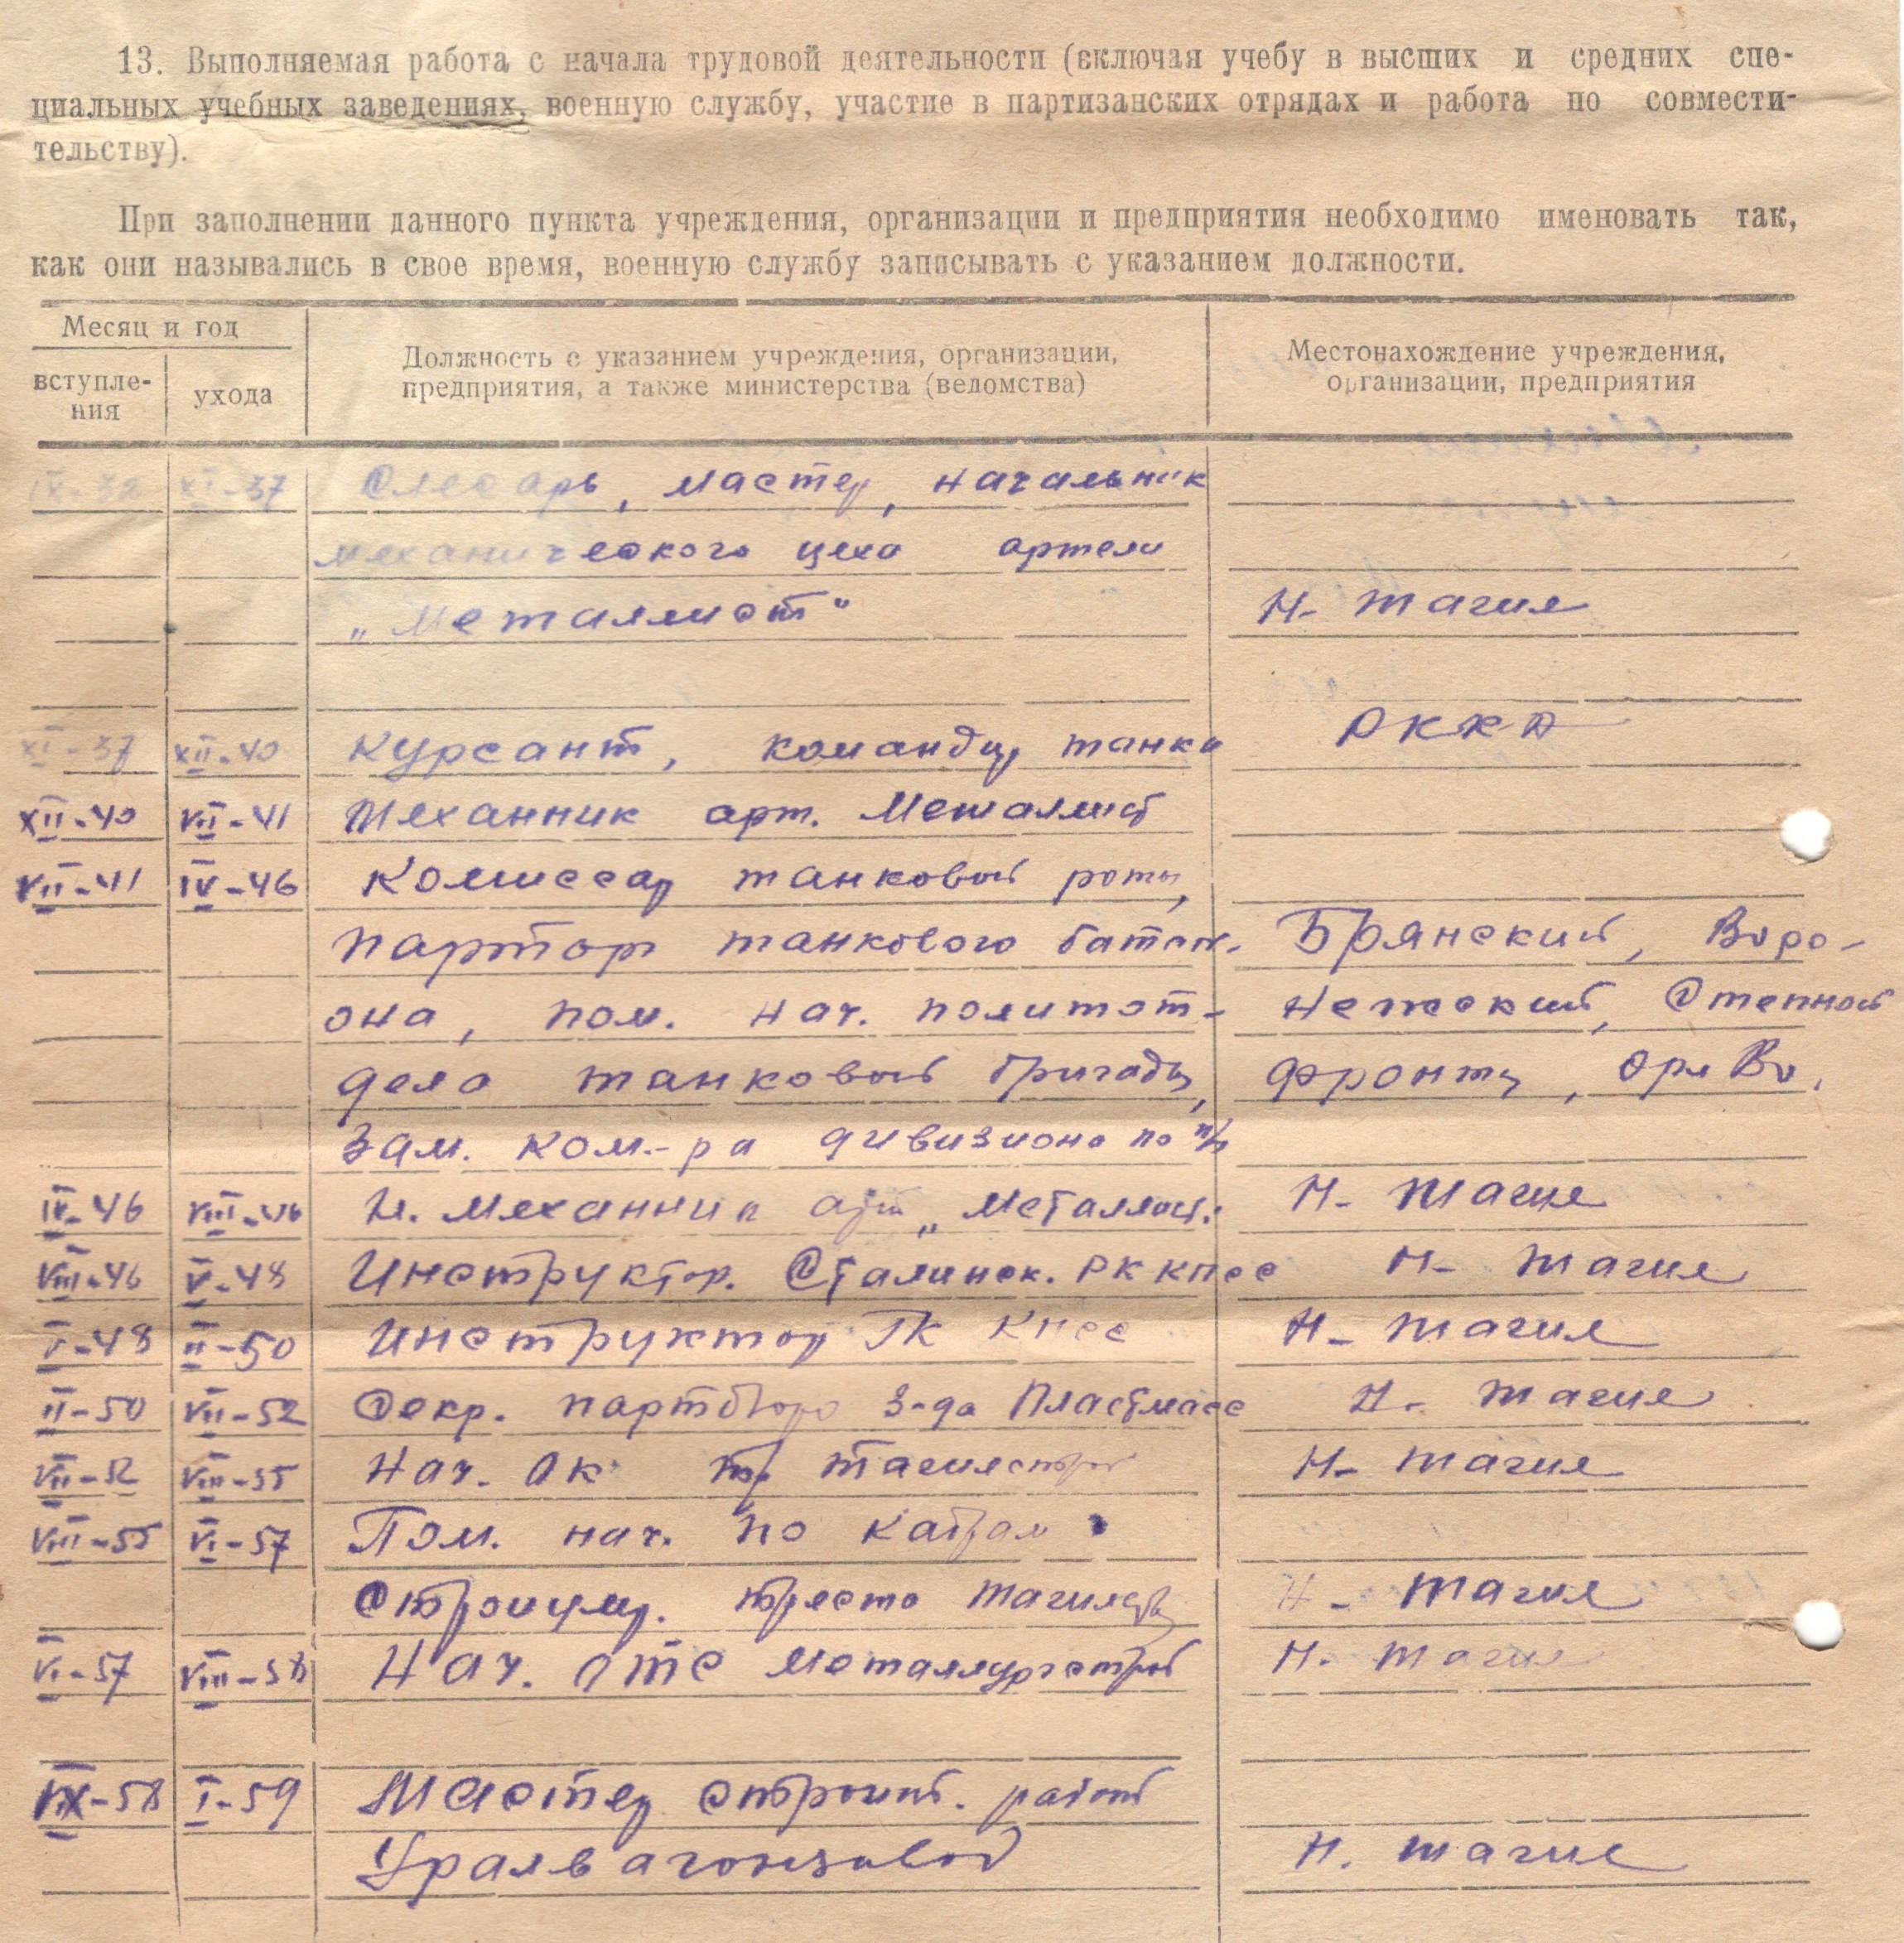 13. Выполняемая работа с начала трудовой деятельности (включая учебу в высших и средних спе-
циальных учебных заведениях, военную службу, участие в партизанских отрядах и работа по совмести-
тельству).
При заполнении данного пункта учреждения, организации и предприятия необходимо именовать так,
как они назывались в свое время, военную службу записывать с указанием должности.
Месяц и год
вступле-
ния
ухода
Должность с указанием учреждения, организации,
предприятия, а также министерства (ведомства)
Местонахождение учреждения,
организации, предприятия
XI-37 Слесарь, мастер, начальник
механического цеха артели
„Металлист" Н-Тагил
XI-37 XII-40 Курсант, командир танка РККА
XII-40 VII-41 Механник арт. Металлист
VII-41 IV-46 Комиссар танковой роты,
парторг танкового баталь- Брянский, Воро-
она, пом. нач. политот- нежский, Степной
дела танковой бригады, фронты, Орл Во.
зам. ком-ра дивизиона по п/ч
IV-46 VIII-46 Механник арт „Металлист" Н-Тагил
VIII-46 V-48 Инструктор. Сталинск. РК КПСС Н-Тагил
V-48 II-50 Инструктор ГК КПСС Н-Тагил
II-50 VII-52 Секр. партбюро з-да Пластмасс Н-Тагил
VII-52 VIII-55 Нач. ОК тр. Тагилстрой Н-Тагил
VIII-55 VI-57 Пом. нач. по кадрам
стройупр. треста Тагилстр Н-Тагил
VI-57 VIII-58 Нач. ОТС Металлургстрой Н-Тагил
IX-58 I-59 Мастер строит. работ
Уралвагонзавод Н. Тагил